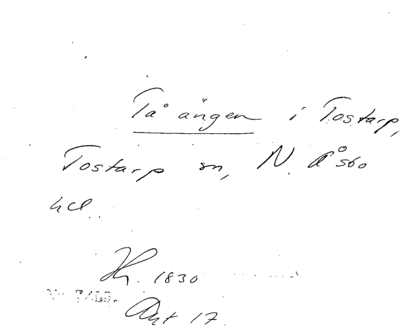 Tå ängen i Tostarp,
Tostarp sn, N. Åsbo
hd.
1830
Akt 17.